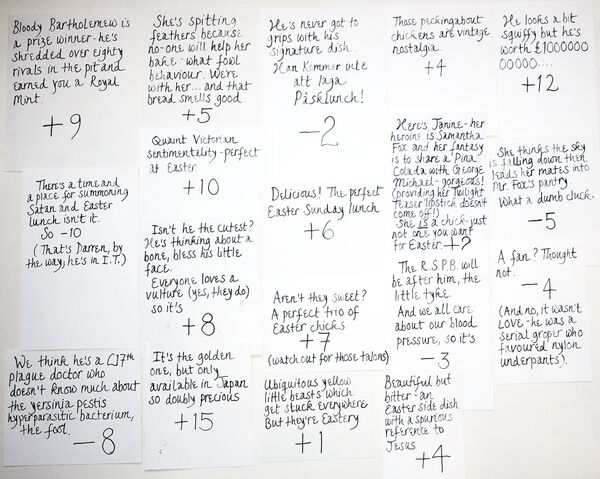 Bloody Bartholemew is
a prize winner - he's
shredded over eighty
rivals in the pit and
earned you a Royal
Mint.
+9
She's spitting
feathers because
no-one will help her
bake - what fowl
behaviour. Were
with her... and that
bread smells good
+5
He's never got to
grips with his
signature dish.
Han Kommer inte
att laga
Påsklunch!
-2
Those pecking about
chickens are vintage
nostalgia.
+4
He looks a bit
squiffy but he's
worth £1000000
00000....
+12
There's a time and
a place for summoning
Satan and Easter
lunch isn't it.
So -10
(That's Darren, by
the way, he's in I.T.)
Quaint Victorian
sentimentality - perfect
at Easter
+10
Isn't he the cutest?
He's thinking about a
bone, bless his little
face.
Everyone loves a
vulture (yes, they do)
so it's
+8
Delicious! The perfect
Easter Sunday lunch
+6
Aren't they sweet?
A perfect trio of
Easter chicks
+7
(watch out for those talons)
Here's Janine - her
heroine is Samantha
Fox and her fantasy
is to share a Pina
Colada with George
Michael - gorgeous!
(providing her Twilight
Teaser lipstick doesn't
come off!)
She is a chick - just
not one you want
for Easter. +2
The R.S.P.B. will
be after him, the
little tyke.
And we all care
about our blood
pressure, so it's
-3
She thinks the sky
is falling down then
leads her mates into
Mr. Fox's pantry.
What a dumb cluck.
-5
A fan? Thought
not.
-4
(And no, it wasn't
LOVE - he was a
serial groper who
favoured nylon
underpants).
We think he's a C17th
plague doctor who
doesn't know much about
the yersinia pestis
hyperparasitic bacterium,
the fool.
-8
It's the golden
one, but only
available in Japan
so doubly precious
+15
Ubiquitous yellow
little beasts which
get stuck everywhere
But they're Eastery
+1
Beautiful but
bitter - an
Easter side dish
with a spurious
reference to
Jesus
+4